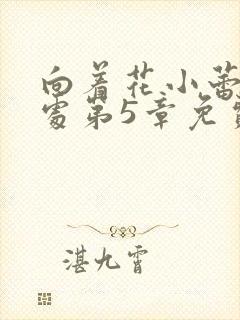 向着花小蕾
处第5章免费
湛九霄